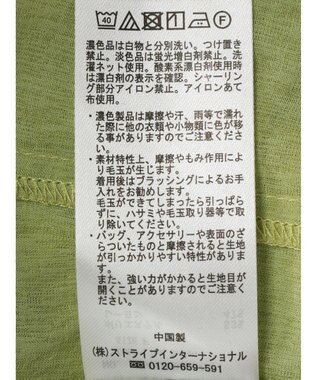 40
濃色品は白物と分別洗い。つけ置き
禁止。淡色品は蛍光増白剤禁止。洗
濯ネット使用。酸素系漂白剤使用時
は漂白剤の表示を確認。シャーリン
グ部分アイロン禁止。アイロンあて
布使用。
・濃色製品は摩擦や汗、雨等で濡れ
た際に他の衣類や小物類に色が移
る事がありますのでご注意くださ
い。
・素材特性上、摩擦やもみ作用によ
り毛玉が生じます。
着用後はブラッシングによるお手
入れをお勧めします。
毛玉ができてしまったら引っぱら
ずに、ハサミや毛玉取り器等で取
り除いてください。
・バッグ、アクセサリーや表面のざ
らついたものと摩擦されると生地
が引っかかりやすい特性がありま
す。
また、強い力がかかると生地目が
開くことがありますのでご注意く
ださい。
中国製
(株)ストライプインターナショナル
☎ 0120-659-591